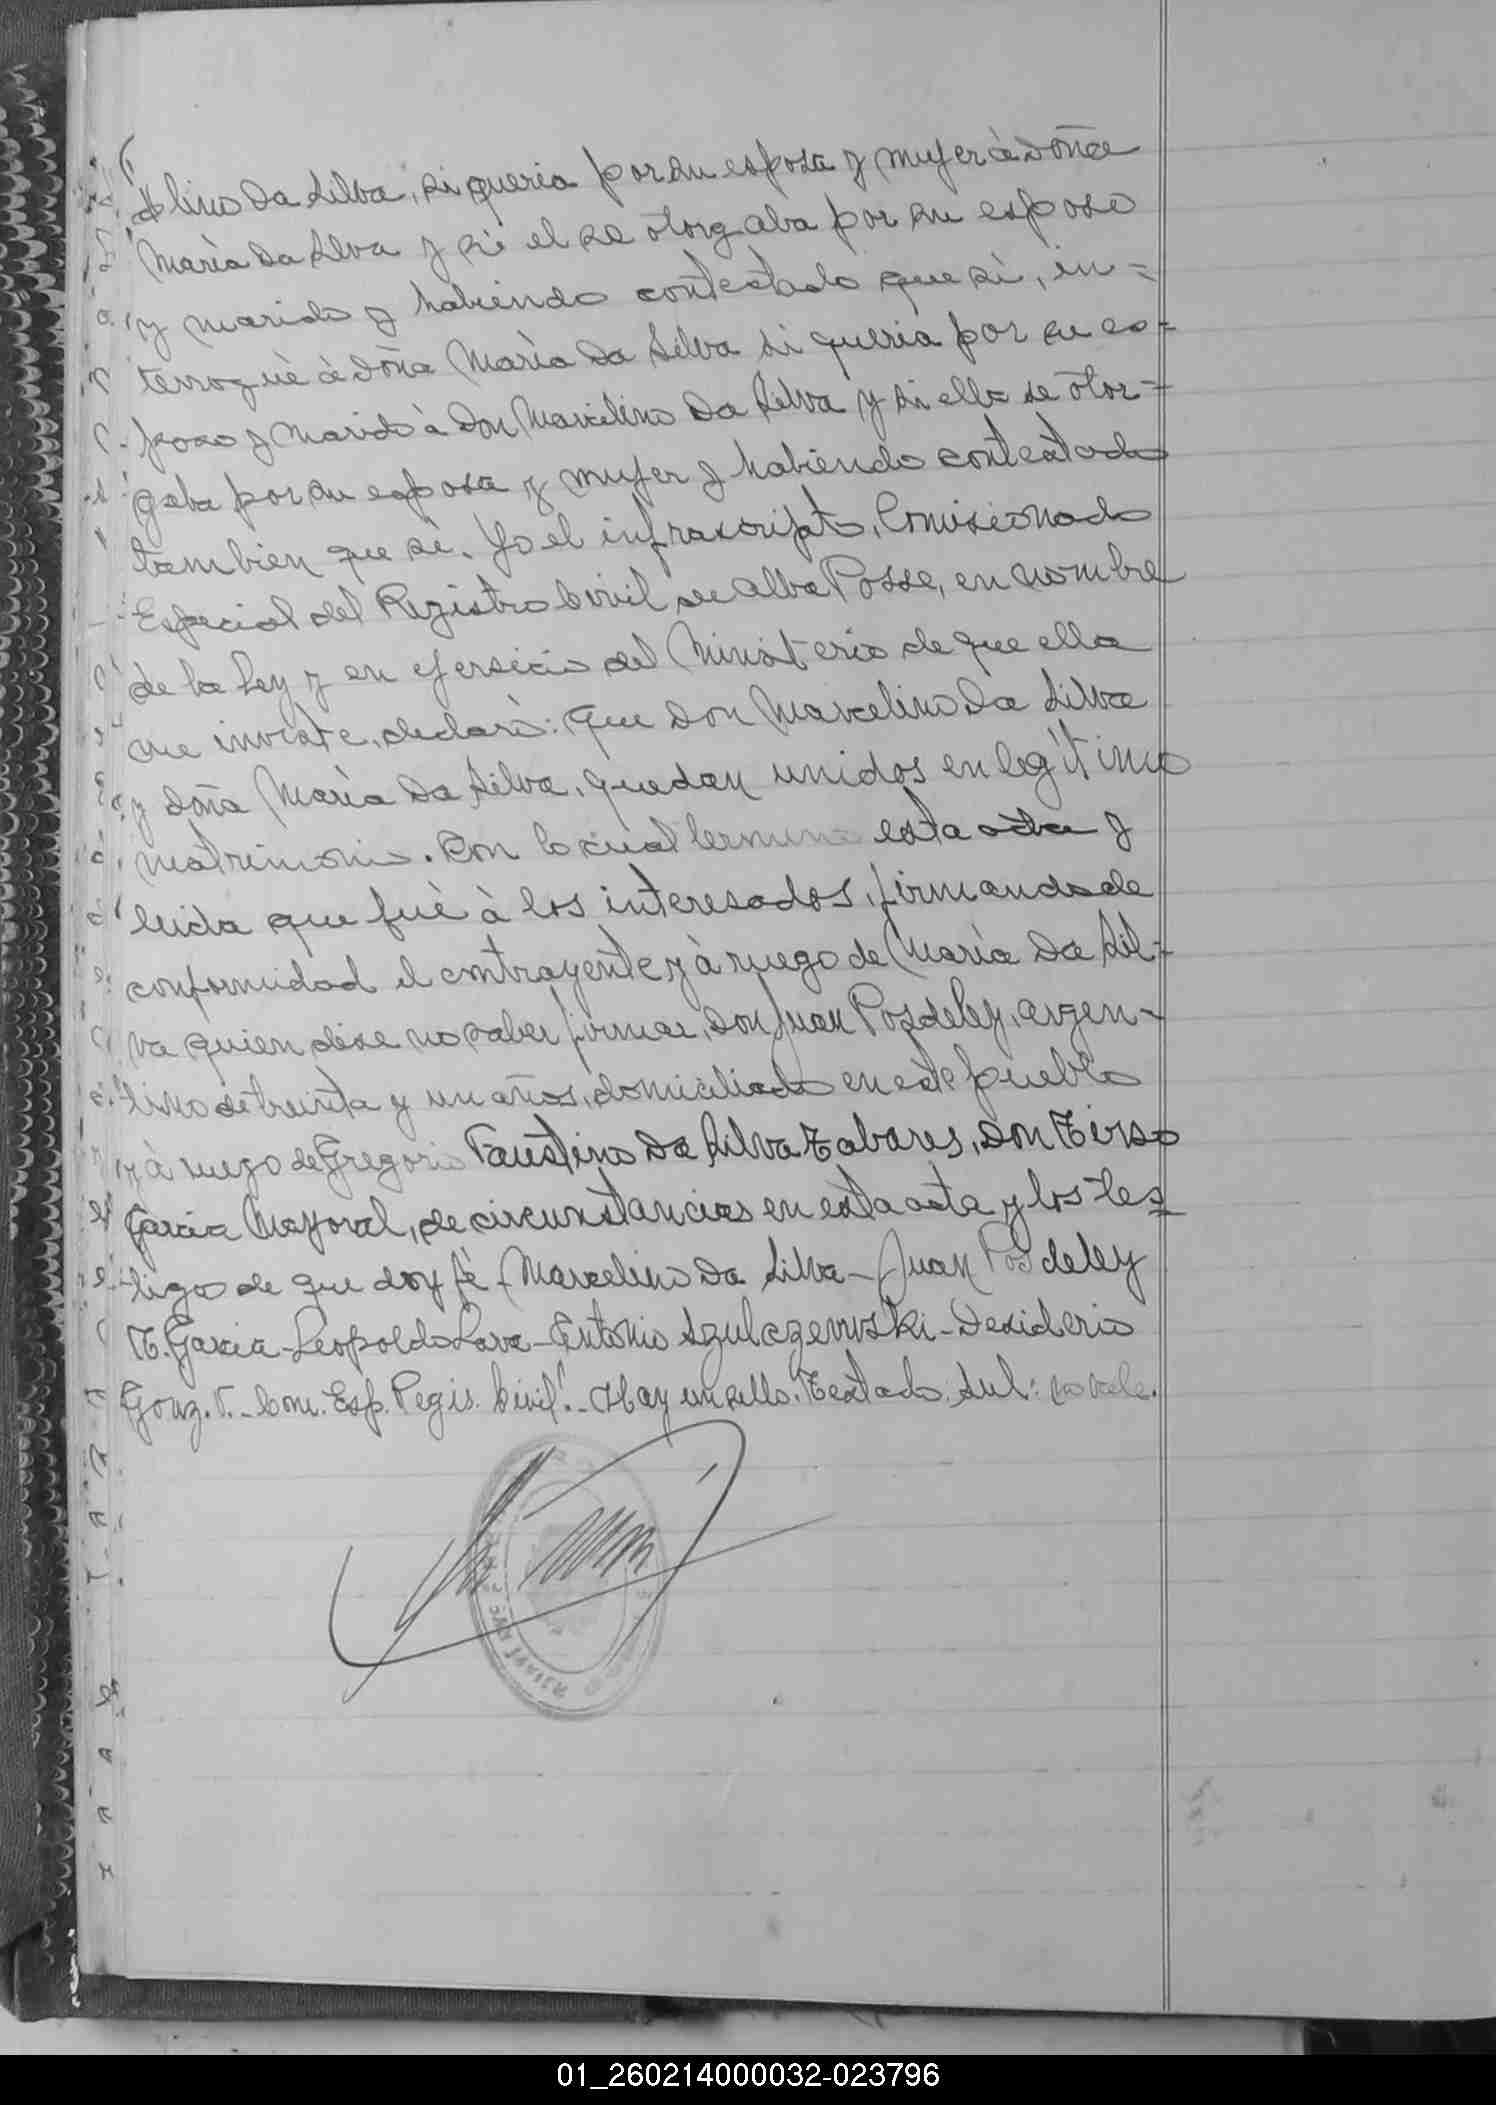 lino Da Silva, si queria por su esposa y mujer à doña
Marìa Da Silva y si el se otorgaba por su esposo
y marido y habiendo contestado que si, in-
terroguè à doña Marìa Da Silva si queria por su es-
poso y marido à Don Marcelino Da Silva y si ella se otor-
gaba por su esposa y mujer y habiendo contestado
tambien que si. Yo el infrascripto, Comisionado
Especial del Registro Civil de Alba Posse, en nombre
de la Ley y en ejersicio del Ministerio de que ella
me inviste, declarò: que Don Marcelino Da Silva
y doña Marìa Da Silva, quedan unidos en legìtimo
matrimonio. Con lo cual termina esta acta y
leida que fuè à los interesados, firmando de
conformidad el contrayente y à ruego de Marìa Da Sil-
va quien dise no saber firmar, Don Juan Posdeley, argen-
tino de treinta y un años, domiciliado en este pueblo
y à ruego de Gregorio Faustino Da Silva Tabares, Don Tirso
Garcia Mayoral, de circunstancias en esta acta y los tes-
tigos de que doy fè - Marcelino Da Silva - Juan Posdeley
T. Garcia - Leopoldo Lara - Antonio Szulczewski - Desiderio
Gonz. V. - Com. Esp. Regis. Civil". - Hay un sello. Textado: Sul: no vale.